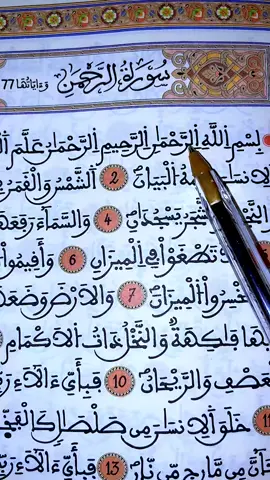 سُورَةُ الرَّحْمَٰنِ وَءَايَاتُهَا 77
بِسْمِ اللَّهِ الرَّحْمَٰنِ الرَّحِيمِ الرَّحْمَٰنُ عَلَّمَ
الْبَيَانَ 2 الشَّمْسُ وَالْقَمَرُ
يَسْجُدَانِ 4 وَالسَّمَآءَ رَفَعَهَا
تَطْغَوْاْ فِي الْمِيزَانِ 6 وَأَقِيمُواْ
تُخْسِرُواْ الْمِيزَانَ 7 وَالَارْضَ وَضَعَهَا
فَٰكِهَةٌ وَالنَّخْلُ ذَاتُ الَاكْمَامِ
الْعَصْفِ وَالرَّيْحَانُ 10 فَبِأَيِّ ءَالَآءِ
11 خَلَقَ الِانسَٰنَ مِن صَلْصَٰلٍ
مِن مَّارِجٍ مِّن نَّارٍ 13 فَبِأَيِّ ءَالَآءِ